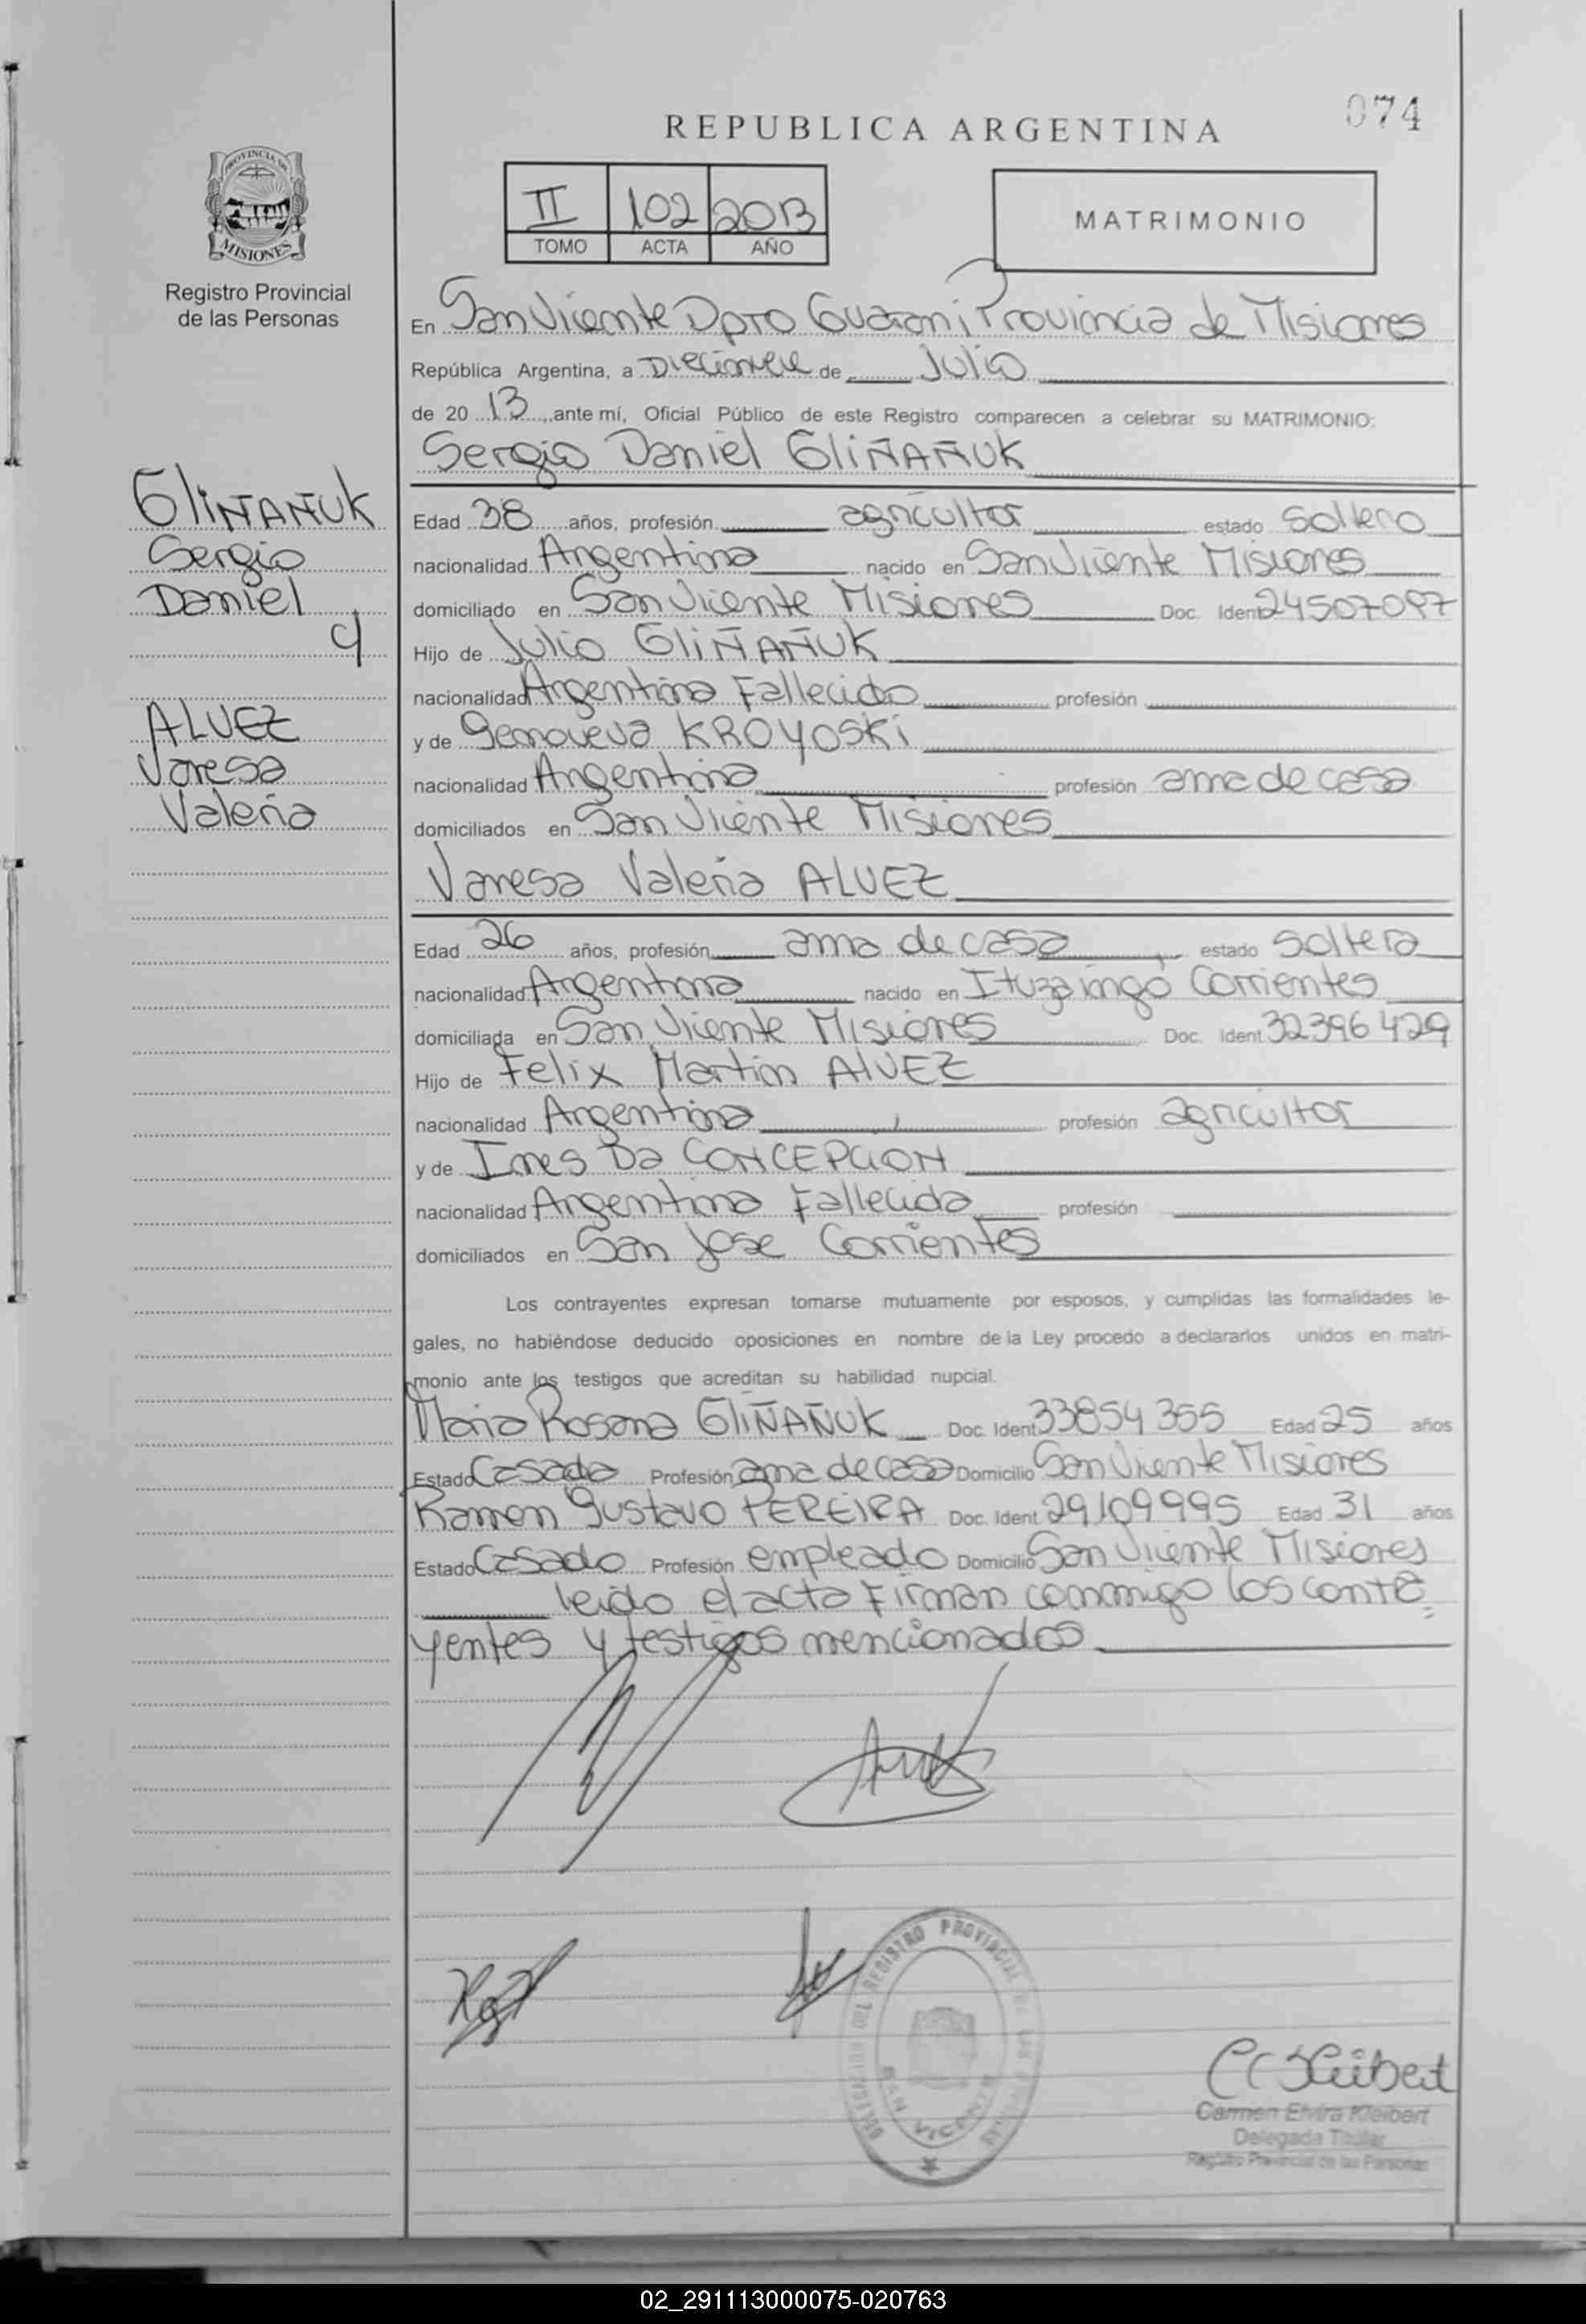 074
REPUBLICA ARGENTINA
II 102 2013
TOMO ACTA AÑO
MATRIMONIO
PROVINCIA DE
MISIONES
Registro Provincial
de las Personas
GliÑAÑUK
Sergio
Daniel
c/
ALVEZ
Vanesa
Valeria
En San Vicente Dpto Guarani Provincia de Misiones
República Argentina, a Diecinueve de Julio
de 20 13, ante mí, Oficial Público de este Registro comparecen a celebrar su MATRIMONIO:
Sergio Daniel GliÑAÑUK
Edad 38 años, profesión agricultor estado soltero
nacionalidad Argentina nacido en San Vicente Misiones
domiciliado en San Vicente Misiones Doc. Ident 24507097
Hijo de Julio GliÑAÑUK
nacionalidad Argentina Fallecido profesión
y de Genoveva KROYOSKi
nacionalidad Argentina profesión ama de casa
domiciliados en San Vicente Misiones
Vanesa Valeria ALVEZ
Edad 26 años, profesión ama de casa estado soltera
nacionalidad Argentina nacido en Ituzaingó Corrientes
domiciliada en San Vicente Misiones Doc. Ident 32396429
Hijo de Felix Martin AlVEZ
nacionalidad Argentina profesión agricultor
y de Ines Da CONCEPCION
nacionalidad Argentina Fallecida profesión
domiciliados en San Jose Corrientes
Los contrayentes expresan tomarse mutuamente por esposos, y cumplidas las formalidades le-
gales, no habiéndose deducido oposiciones en nombre de la Ley procedo a declararlos unidos en matri-
monio ante los testigos que acreditan su habilidad nupcial.
Maria Rosana GliÑAÑUK Doc. Ident 33854355 Edad 25 años
Estado Casada Profesión ama de casa Domicilio San Vicente Misiones
Ramon Gustavo PEREiRA Doc. Ident 29109995 Edad 31 años
Estado Casado Profesión empleado Domicilio San Vicente Misiones
leido el acta Firman conmigo los contra=
yentes y testigos mencionados
DEL REGISTRO PROVINCIAL DE LAS
SAN VICENTE
Carmen Elvira Kleibert
Delegada Titular
Registro Provincial de las Personas
02_291113000075-020763